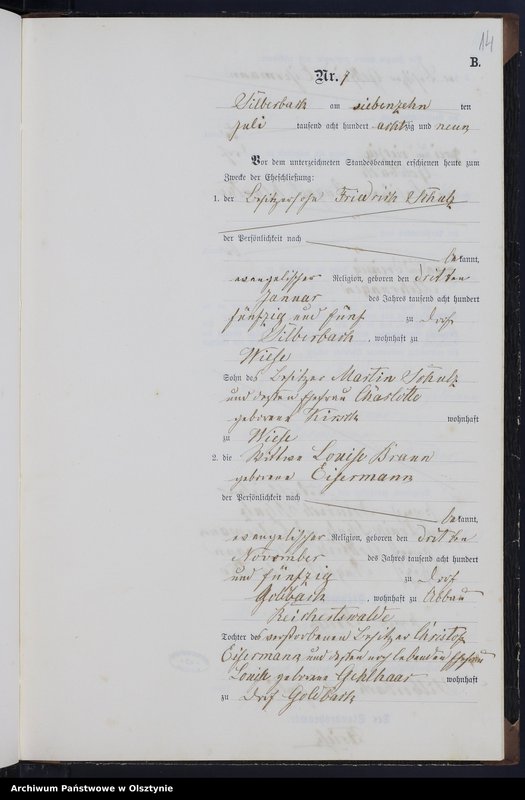 14
B.
Nr. 9
Silberbach am siebenzehn ten
Juli tausend acht hundert achtzig und neun
Vor dem unterzeichneten Standesbeamten erschienen heute zum
Zwecke der Eheschließung:
1. der Besitzersohn Friedrich Schulz
der Persönlichkeit nach
bekannt,
evangelischer Religion, geboren den dritten
Januar des Jahres tausend acht hundert
fünfzig und fünf zu Dorf
Silberbach, wohnhaft zu
Wiese
Sohn des Besitzer Martin Schulz
und dessen Ehefrau Charlotte
geborene wohnhaft
zu Wiese
2. die Wittwe Louise Braun
geborene Eisermann
der Persönlichkeit nach
bekannt,
evangelischer Religion, geboren den dritten
November des Jahres tausend acht hundert
und fünfzig zu Dorf
Goldbach, wohnhaft zu Abbau
Reichertswalde
Tochter des verstorbenen Besitzer Christof
Eisermann und dessen noch lebenden Ehefrau
Louise geborene Gehlhaar wohnhaft
zu Dorf Goldbach
Archiwum Państwowe w Olsztynie